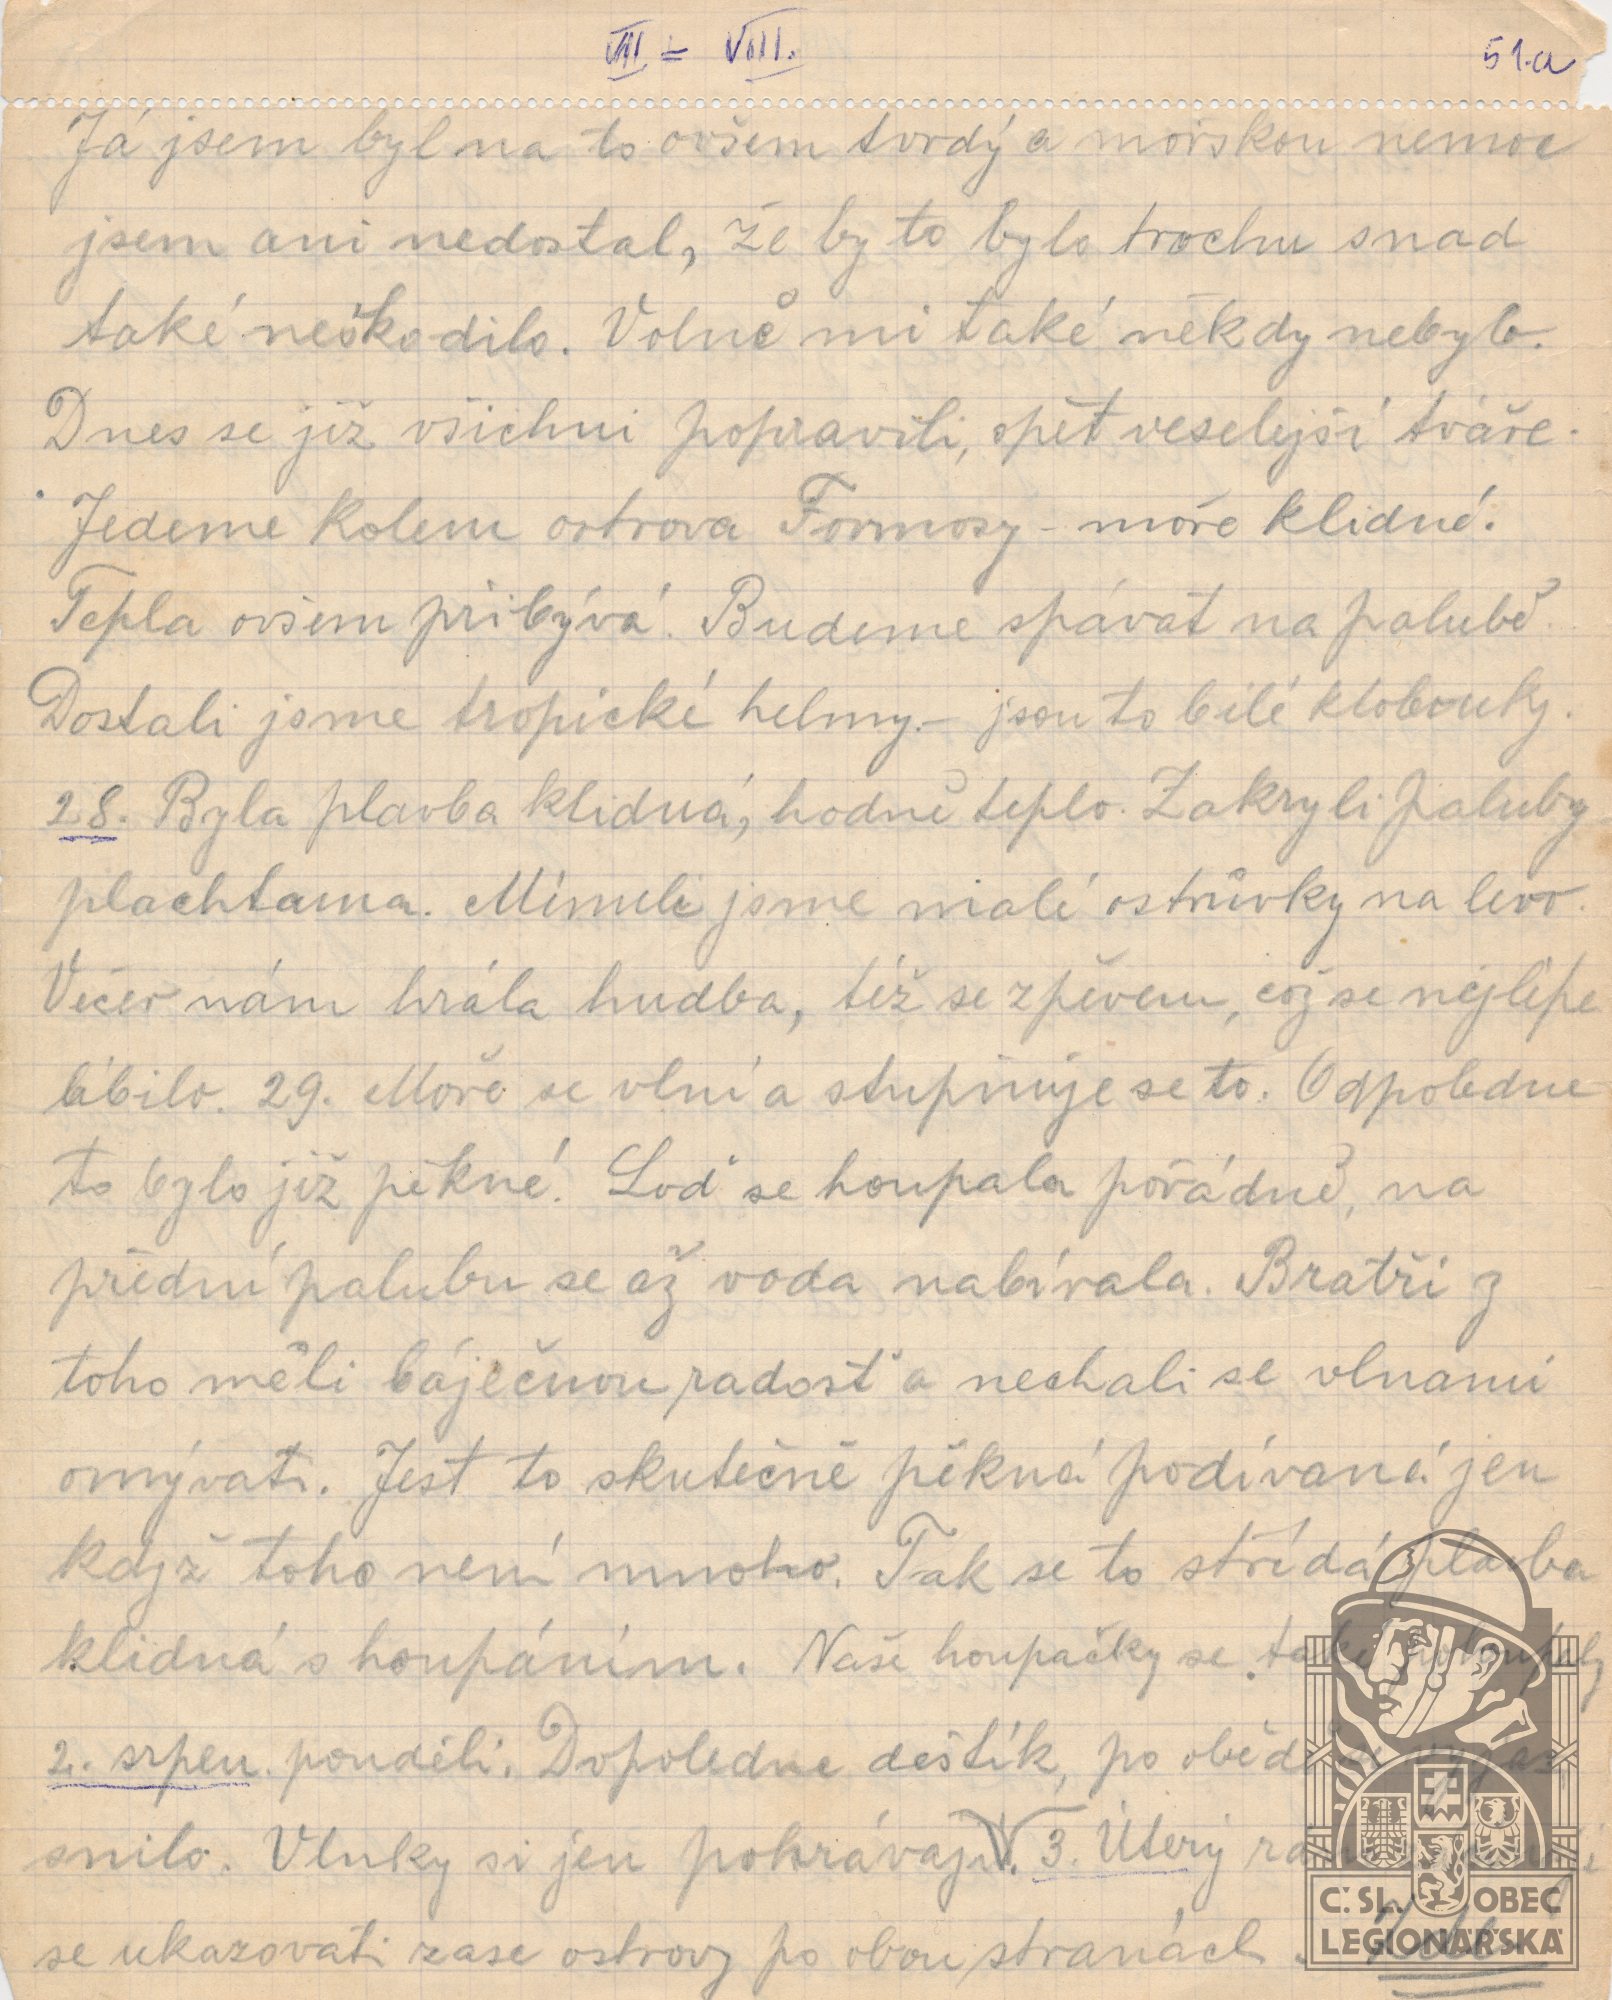 VII = VIII. 51.a
Já jsem byl na to ovšem tvrdý a mořskou nemoc
jsem ani nedostal, že by to bylo trochu snad
také neškodilo. Volně mi také někdy nebylo.
Dnes se již všichni popravili, opět veselejší tváře.
Jedeme kolem ostrova Formosy - moře klidné.
Tepla ovšem přibývá. Budeme spávat na palubě.
Dostali jsme tropické helmy. - jsou to bílé klobouky.
28. Byla plavba klidná, hodně teplo. Zakryli paluby
plachtama. Minuli jsme malé ostrůvky na levo.
Večer nám hrála hudba, též se zpěvem, což se nejlépe
líbilo. 29. Moře se vlní a stupňuje se to. Odpoledne
to bylo již pěkné. Loď se houpala pořádně, na
přední palubu se až voda nabívala. Bratři z
toho měli báječnou radosť a nechali se vlnami
omývati. Jest to skutečně pěkná podívaná jen
když toho není mnoho. Tak se to střídá plavba
klidná s houpáním. Naše houpačky se také
2. srpen. pondělí. Dopoledne deštík, po obědě se vyjas
snilo. Vlnky si jen pohrávají. 3. Úterý
se ukazovati zase ostrovy po obou stranách.
Č. SL. OBEC
LEGIONÁŘSKÁ